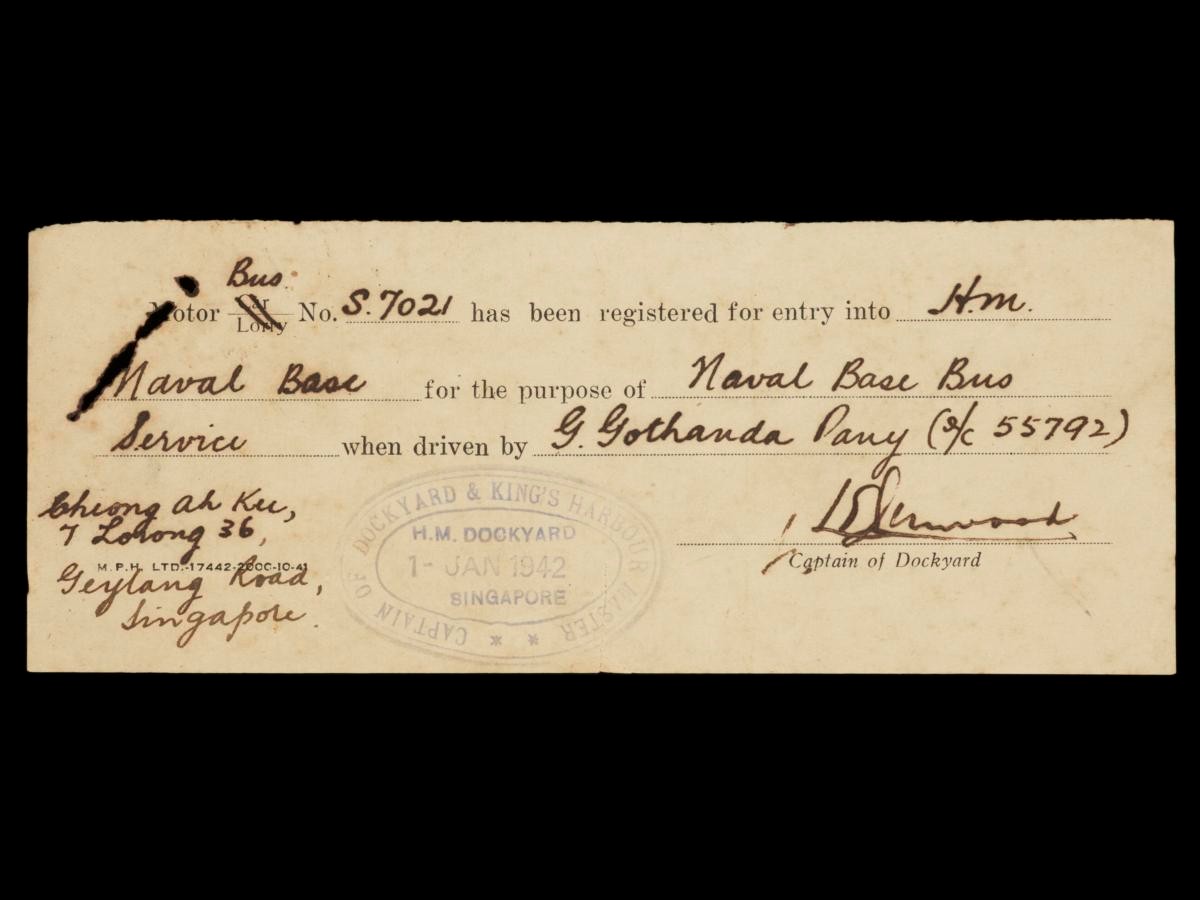 Bus
Motor Car
Lorry No. S. 7021 has been registered for entry into H.M.
Naval Base for the purpose of Naval Base Bus
Service when driven by G. Gothanda Pany (I/c 55792)
Cheong Ah Kee,
7 Lorong 36,
M.P.H. LTD.-17442-2000-10-41
Geylang Road,
Singapore.
CAPTAIN OF DOCKYARD & KING'S HARBOUR MASTER
H.M. DOCKYARD
1- JAN 1942
SINGAPORE
Captain of Dockyard